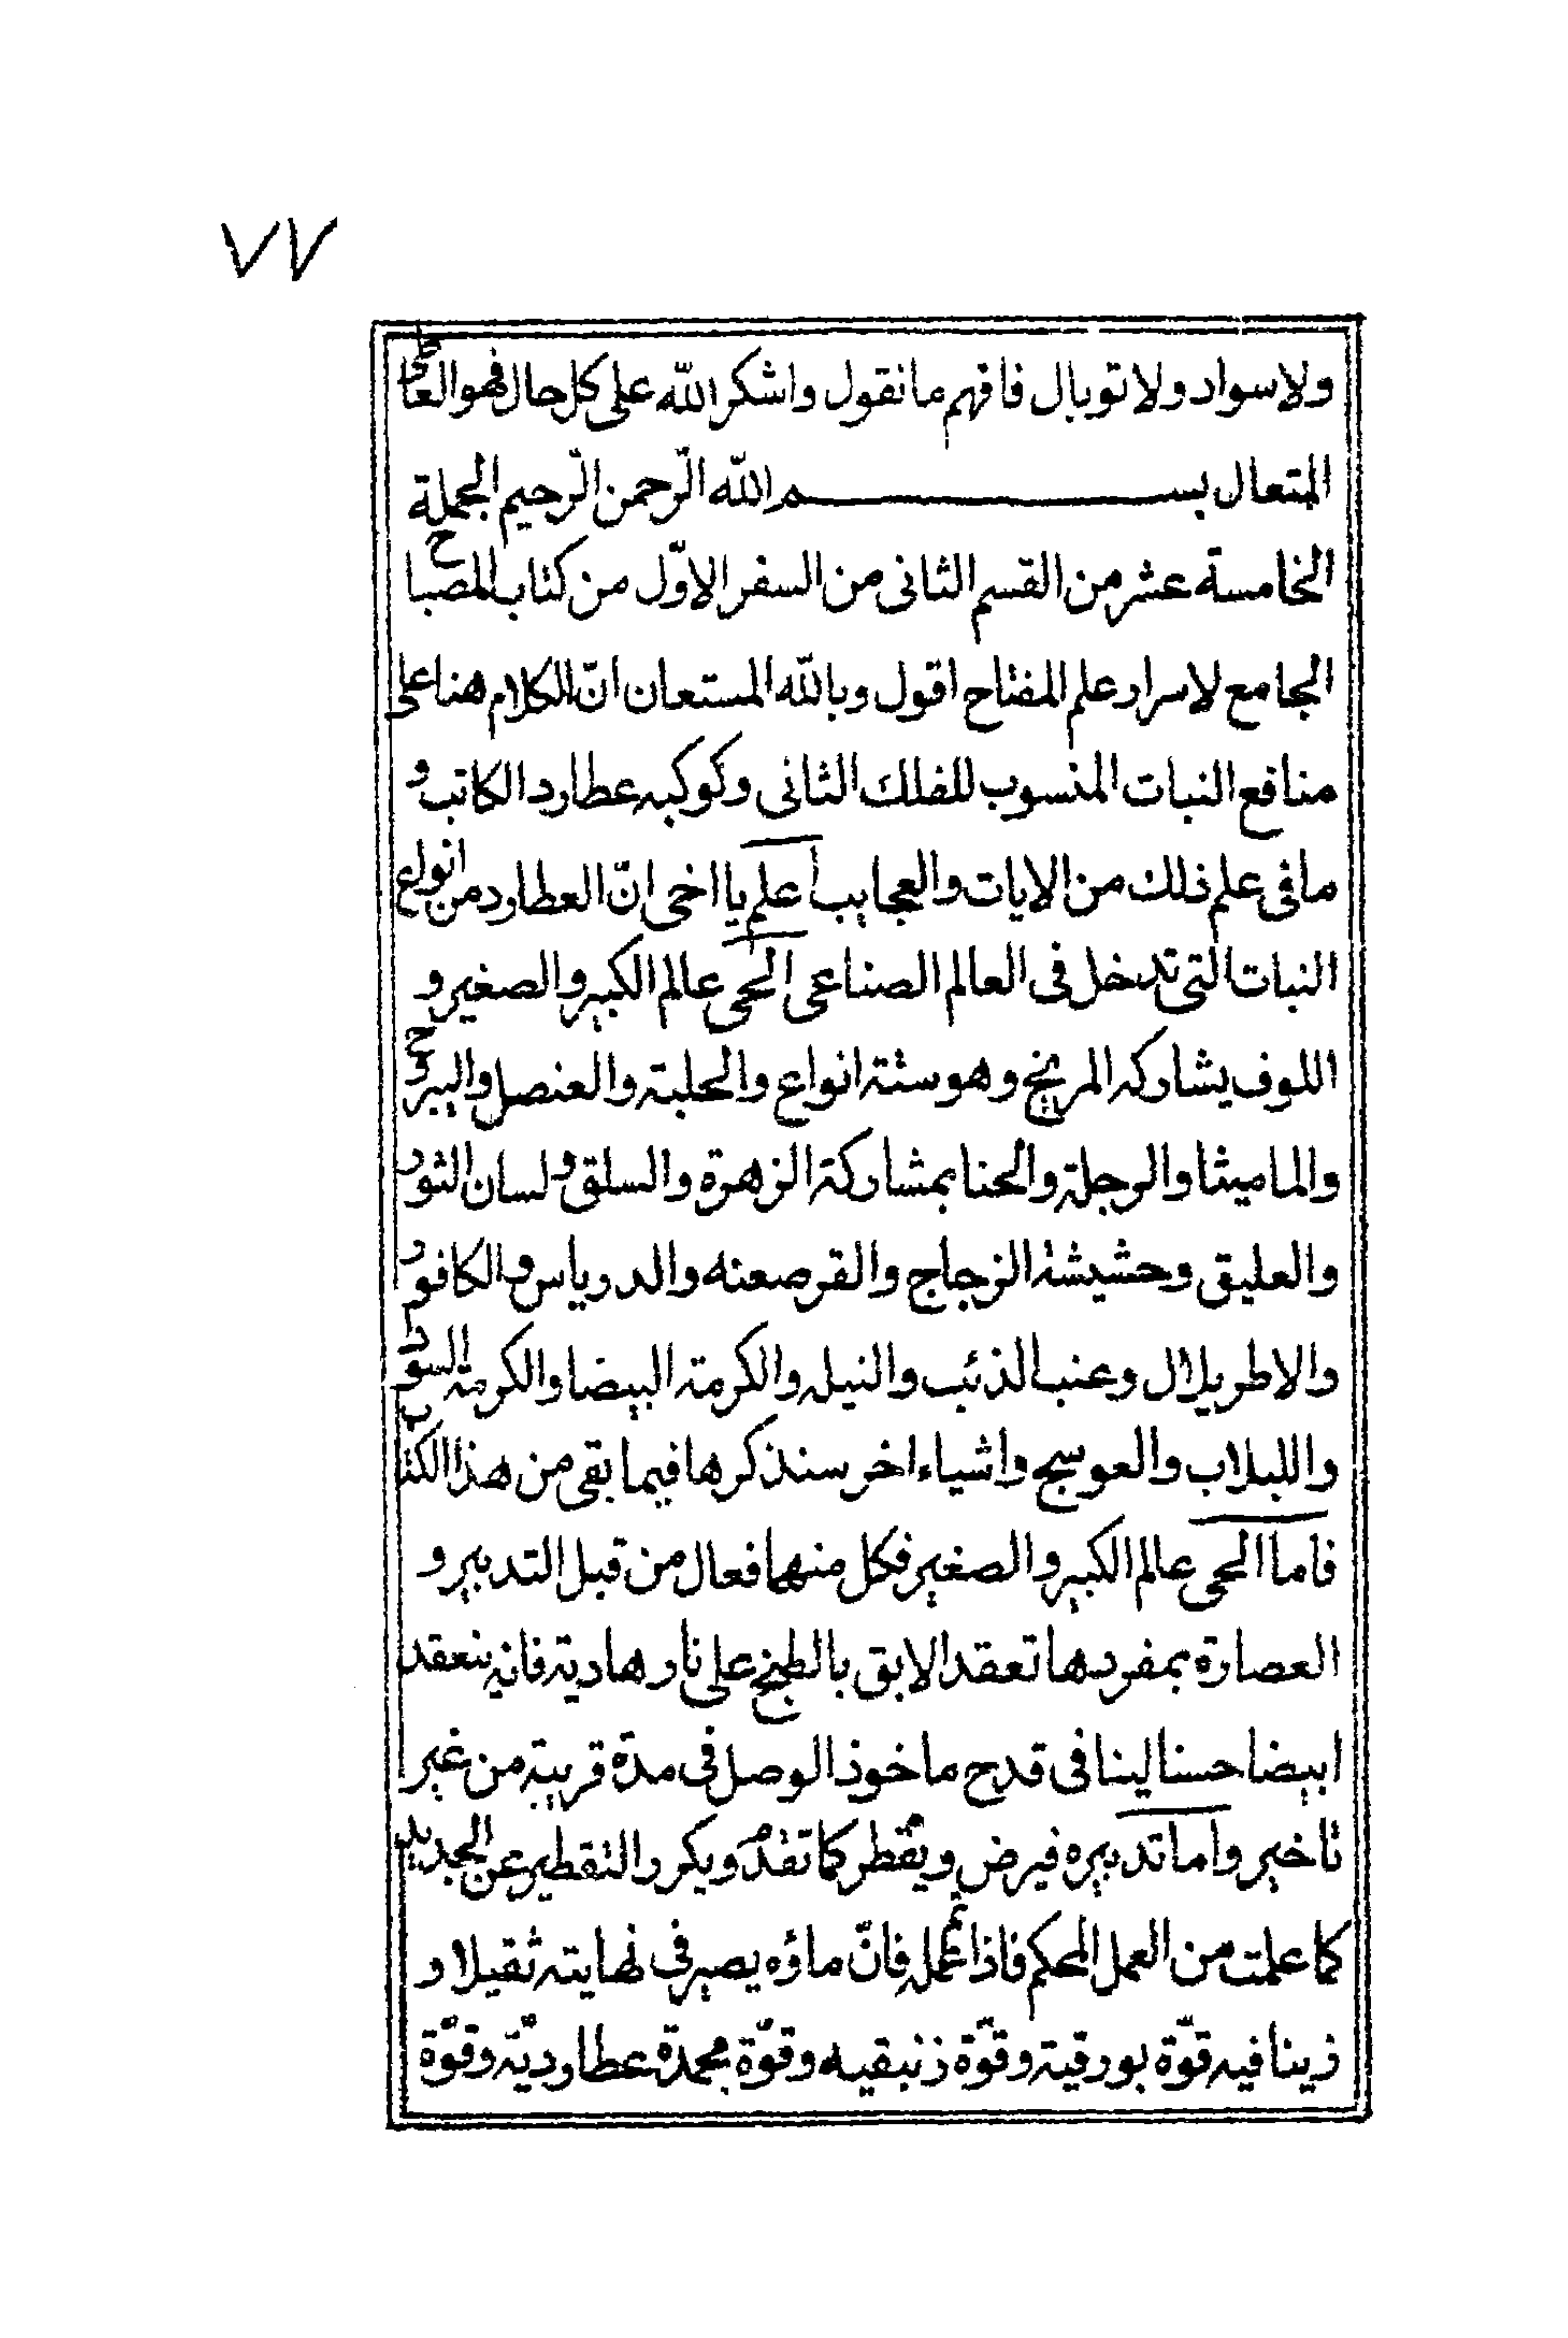 ٧٧
ولا سواد ولا توبال فافهم ما نقول واشكر الله على كل حال فهو
المتعال بســـــــــم الله الرّحمن الرّحيم الجملة
الخامسة عشر من القسم الثانى من السفر الاوّل من كتاب المصباح
الجامع لاسرار علم المفتاح اقول وبالله المستعان انّ الكلام هنا على
منافع النبات المنسوب للفلك الثانى وكوكبه عطارد الكاتب و
ما فى علم ذلك من الايات والعجايب اعلم يا اخى انّ العطارد من انواع
النبات التى تدخل فى العالم الصناعى الحى عالم الكبير والصغير و
اللوف يشاركه المريخ وهو ستة انواع والحلبة والعنصل واليبروح
والماميثا والرجلة والحنا بمشاركة الزهرة والسلق ولسان الثور
والعليق وحشيشة الزجاج والقرصعنه والدرياس والكافور
والاطريلال وعنب الذئب والنيل والكرمة البيضا والكرمة السودا
واللبلاب والعوسج واشياء اخر سنذكرها فيما بقى من هذا الكتاب
فاما الحى عالم الكبير والصغير فكل منهما فعال من قبل التدبير و
العصارة بمفردها تعقد الابق بالطبخ على نار هادية فانه ينعقد
ابيضا حسنا لينا فى قدح ماخوذ الوصل فى مدة قريبة من غير
تاخير واما تدبيره فيرض ويقطر كما تقدم ويكرر التقطير عن الجديد
كما علمت من العمل المحكم فاذا تم عمله فانّ ماؤه يصير فى نهايته ثقيلا و
زيتا فيه قوّة بورقية وقوّة زنبقيه وقوّة مجمدة عطارديّه وقوّة